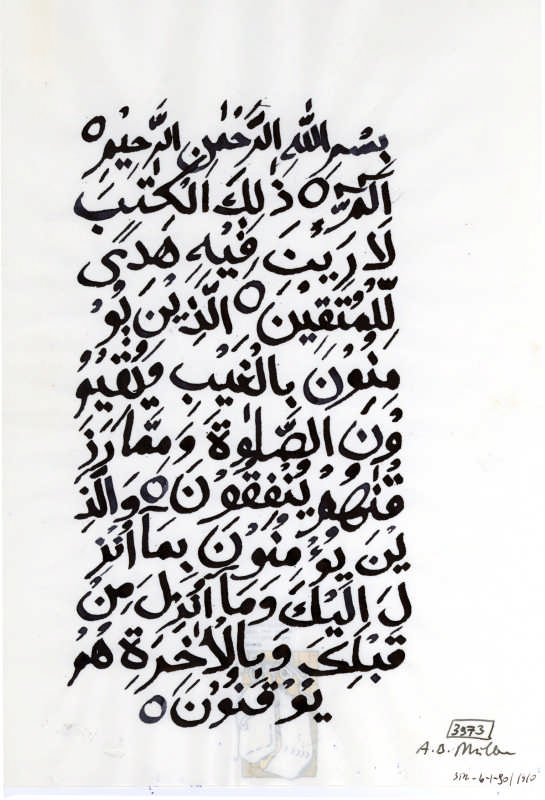 بِسْمِ اللهِ الرَّحْمٰنِ الرَّحِيْمِ ○
الٓمّٓ ○ ذٰلِكَ الْكِتٰبَ
لَا رَيْبَ فِيْهِ هَدًى
لِّلْمُتَّقِيْنَ ○ الَّذِيْنَ يُوْ
مِنُوْنَ بِالْغَيْبِ وَيُقِيْمُ
وْنَ الصَّلٰوةَ وَمِمَّا رَزَ
قْنٰهُمْ يُنْفِقُوْنَ ○ وَالَّذِ
يْنَ يُؤْمِنُوْنَ بِمَآ اُنْزِ
لَ اِلَيْكَ وَمَآ اُنْزِلَ مِنْ
قَبْلِكَ وَبِالْاٰخِرَةِ هُمْ
يُوْقِنُوْنَ ○
3973